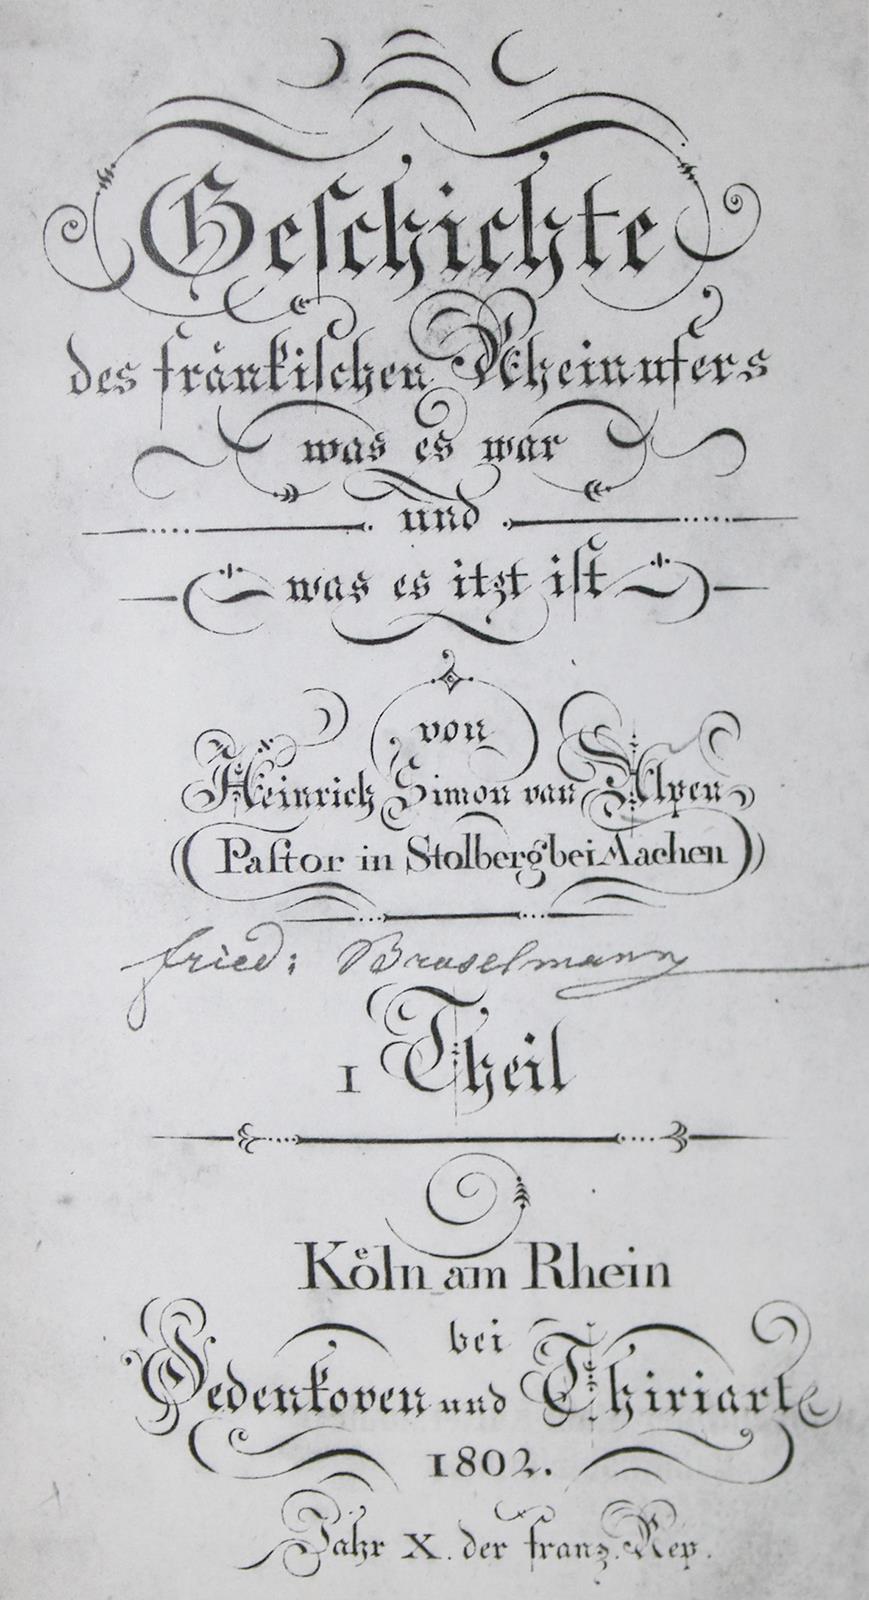 Geschichte
des fränkischen Rheinufers
was es war
und
was es itzt ist
von
Heinrich Simon van Alpen
(Pastor in Stolberg bei Aachen)
fried: Bruselmann
1 Theil
Köln am Rhein
bei
Oedenkoven und Thiriart
1802.
Jahr X. der franz. Rep.